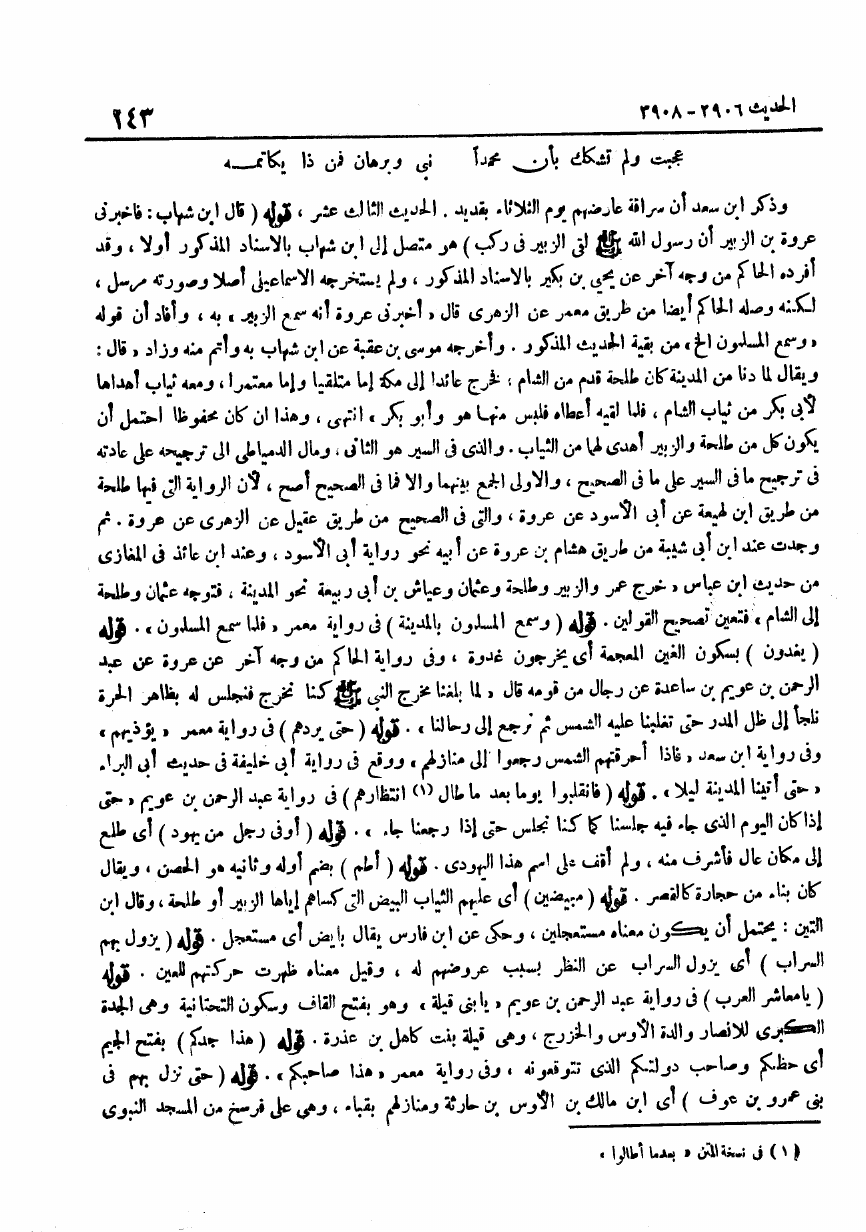 الحديث ٢٩٠٦ - ٣٩٠٨
٢٤٣
عجبت ولم تشكك بأن محمداً نبى وبرهان فمن ذا يكاتمـــه
وذكر ابن سعد أن سراقة عارضهم يوم الثلاثاء بقديد . الحديث الثالث عشر ، قوله ( قال ابن شهاب : فاخبرنى
عروة بن الزبير أن رسول الله ﷺ لقى الزبير فى ركب ) هو متصل إلى ابن شهاب بالاسناد المذكور أولا ، وقد
أفرده الحاكم من وجه آخر عن يحيى بن بكير بالاسناد المذكور ، ولم يستخرجه الاسماعيلى أصلا وصورته مرسل ،
لكنه وصله الحاكم أيضا من طريق معمر عن الزهرى قال « أخبرنى عروة أنه سمع الزبير » به ، وأفاد أن قوله
« وسمع المسلمون الخ » من بقية الحديث المذكور . وأخرجه موسى بن عقبة عن ابن شهاب به وأتم منه وزاد « قال :
ويقال لما دنا من المدينة كان طلحة قدم من الشام ، فخرج عائدا إلى مكة إما متلقيا وإما معتمرا ، ومعه ثياب أهداها
لأبى بكر من ثياب الشام ، فلما لقيه أعطاه فلبس منهـا هو وأبو بكر » انتهى ، وهذا ان كان محفوظا احتمل أن
يكون كل من طلحة والزبير أهدى لهما من الثياب . والذى فى السير هو الثانى ، ومال الدمياطى الى ترجيحه على عادته
فى ترجيح ما فى السير على ما فى الصحيح ، والاولى الجمع بينهما والا فما فى الصحيح أصح ، لأن الرواية التى فيها طلحة
من طريق ابن لهيعة عن أبى الأسود عن عروة ، والتى فى الصحيح من طريق عقيل عن الزهرى عن عروة . ثم
وجدت عند ابن أبى شيبة من طريق هشام بن عروة عن أبيه نحو رواية أبى الأسود ، وعند ابن عائذ فى المغازى
من حديث ابن عباس « خرج عمر والزبير وطلحة وعثمان وعياش بن أبى ربيعة نحو المدينة ، فتوجه عثمان وطلحة
إلى الشام » فتعين تصحيح القولين . قوله ( وسمع المسلمون بالمدينة ) فى رواية معمر « فلما سمع المسلمون » . قوله
( يغدون ) بسكون الغين المعجمة أى يخرجون غدوة ، وفى رواية الحاكم من وجه آخر عن عروة عن عبد
الرحمن بن عويم بن ساعدة عن رجال من قومه قال « لما بلغنا مخرج النبى ﷺ كنا نخرج فنجلس له بظاهر الحرة
نلجأ إلى ظل المدر حتى تغلبنا عليه الشمس ثم نرجع إلى رحالنا » . قوله ( حتى يردهم ) فى رواية معمر « يؤذيهم »
وفى رواية ابن سعد « فاذا أحرقتهم الشمس رجعوا إلى منازلهم » ووقع فى رواية أبى خليفة فى حديث أبى البراء
« حتى أتينا المدينة ليلا » . قوله ( فانقلبوا يوما بعد ما طال (١) انتظارهم ) فى رواية عبد الرحمن بن عويم « حتى
إذا كان اليوم الذى جاء فيه جلسنا كما كنا نجلس حتى إذا رجعنا جاء » . قوله ( أوفى رجل من يهود ) أى طلع
إلى مكان عال فأشرف منه ، ولم أقف على اسم هذا اليهودى . قوله ( أطم ) بضم أوله وثانيه هو الحصن ، ويقال
كان بناء من حجارة كالقصر . قوله ( مبيضين ) أى عليهم الثياب البيض التى كساهم إياها الزبير أو طلحة ، وقال ابن
التين : يحتمل أن يكون معناه مستعجلين ، وحكى عن ابن فارس يقال بايض أى مستعجل . قوله ( يزول بهم
السراب ) أى يزول السراب عن النظر بسبب عروضهم له ، وقيل معناه ظهرت حركتهم للعين . قوله
( يا معاشر العرب ) فى رواية عبد الرحمن بن عويم « يا بنى قيلة » وهو بفتح القاف وسكون التحتانية وهى الجدة
الكبرى للانصار والدة الأوس والخزرج ، وهى قيلة بنت كاهل بن عذرة . قوله ( هذا جدكم ) بفتح الجيم
أى حظكم وصاحب دولتكم الذى تتوقعونه ، وفى رواية معمر « هذا صاحبكم » . قوله ( حتى نزل بهم فى
بنى عمرو بن عوف ) أى ابن مالك بن الأوس بن حارثة ومنازلهم بقباء ، وهى على فرسخ من المسجد النبوى
(١) فى نسخة المتن « بعدما أطالوا »